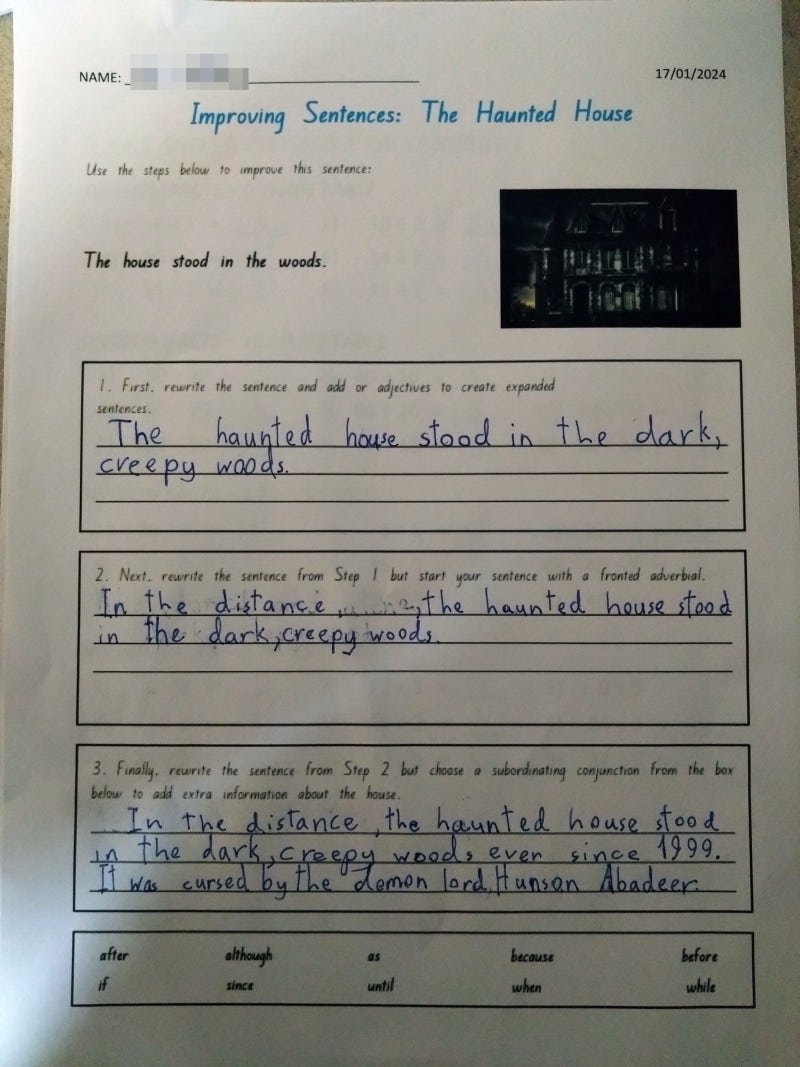 NAME:
17/01/2024
Improving Sentences: The Haunted House
Use the steps below to improve this sentence:
The house stood in the woods.
1. First, rewrite the sentence and add or adjectives to create expanded
sentences.
The haunted house stood in the dark,
creepy woods.
2. Next, rewrite the sentence from Step 1 but start your sentence with a fronted adverbial.
In the distance, the haunted house stood
in the dark, creepy woods.
3. Finally, rewrite the sentence from Step 2 but choose a subordinating conjunction from the box
below to add extra information about the house.
In the distance, the haunted house stood
in the dark, creepy woods ever since 1999.
It was cursed by the demon lord, Hunson Abadeer.
after although as because before
if since until when while